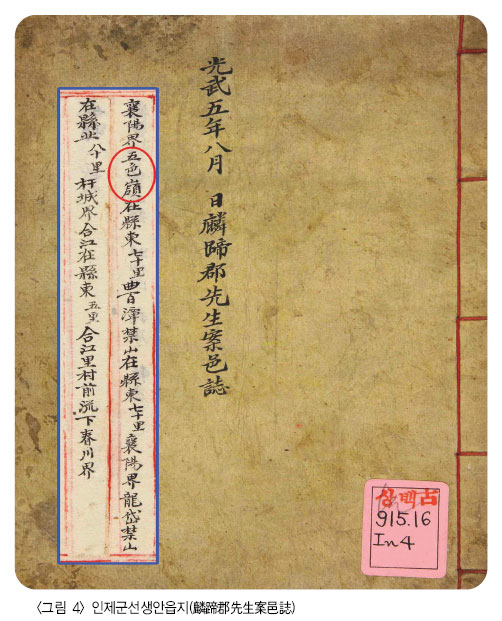 光武五年八月 日麟蹄郡先生案邑誌
襄陽界五色嶺在縣東七十里曲百潭禁山在縣東七十里襄陽界龍岱禁山
在縣北八十里杆城界合江在縣東五里合江里村前流下春川界
915.16
In4
〈그림 4〉 인제군선생안읍지(麟蹄郡先生案邑誌)